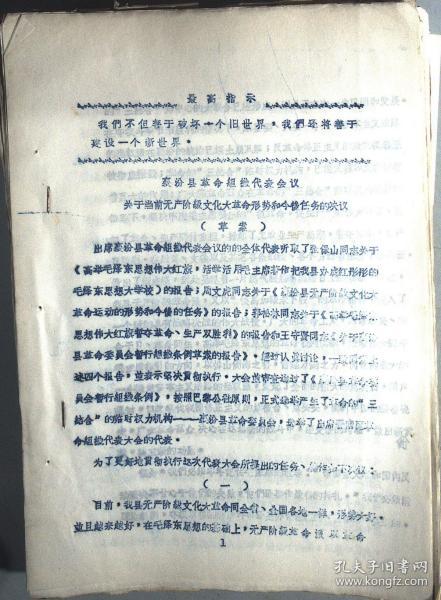 最高指示
我們不但善于破坏一个旧世界,我們还将善于
建设一个新世界。
襄汾县革命组织代表会议
关于当前无产阶级文化大革命形势和今后任务的决议
(草案)
出席襄汾县革命组织代表会议的的全体代表听取了张保山同志关于
《高举毛泽东思想伟大红旗,活学活用毛主席著作把我县办成红彤彤的
毛泽东思想大学校》的报告;周文虎同志关于《襄汾县无产阶级文化大
革命运动的形势和今后的任务》的报告;同志关于《
思想伟大红旗夺革命、生产双胜利》的报告和王守贤同志
县革命委员会暂行组织条例草案的报告》。经过认真讨论,一致同意上
述四个报告,並表示坚决贯彻执行。大会
员会暂行组织条例》,按照巴黎公社原则,正式选举产生了革命的"三
结合"的临时权力机构——襄汾县革命委员会,选举了出席晋南区
命组织代表大会的代表。
为了更好地贯彻执行这次代表大会所提出的任务、
(一)
目前,我县无产阶级文化大革命同全省、全国各地一样,形势大好,
並且越来越好,在毛泽东思想的基础上,无产阶级革命派联革命
1
孔夫子旧书网
book.kongfz.com